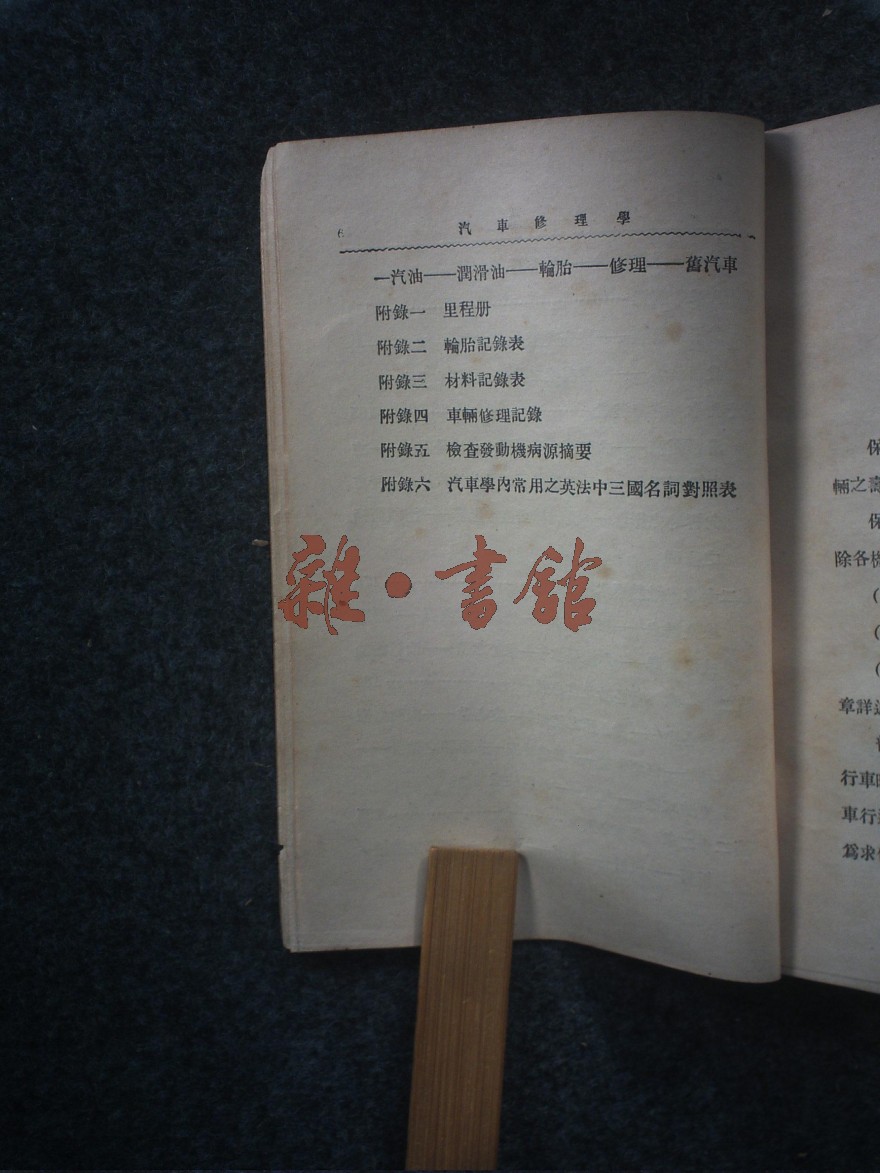 6 汽車修理學
一汽油——潤滑油——輪胎——修理——舊汽車
附錄一 里程册
附錄二 輪胎記錄表
附錄三 材料記錄表
附錄四 車輛修理記錄
附錄五 檢查發動機病源摘要
附錄六 汽車學內常用之英法中三國名詞對照表
雜·書館
保
輛之壽
保
除各機
(
(
(
章詳述
行車
車行
爲求